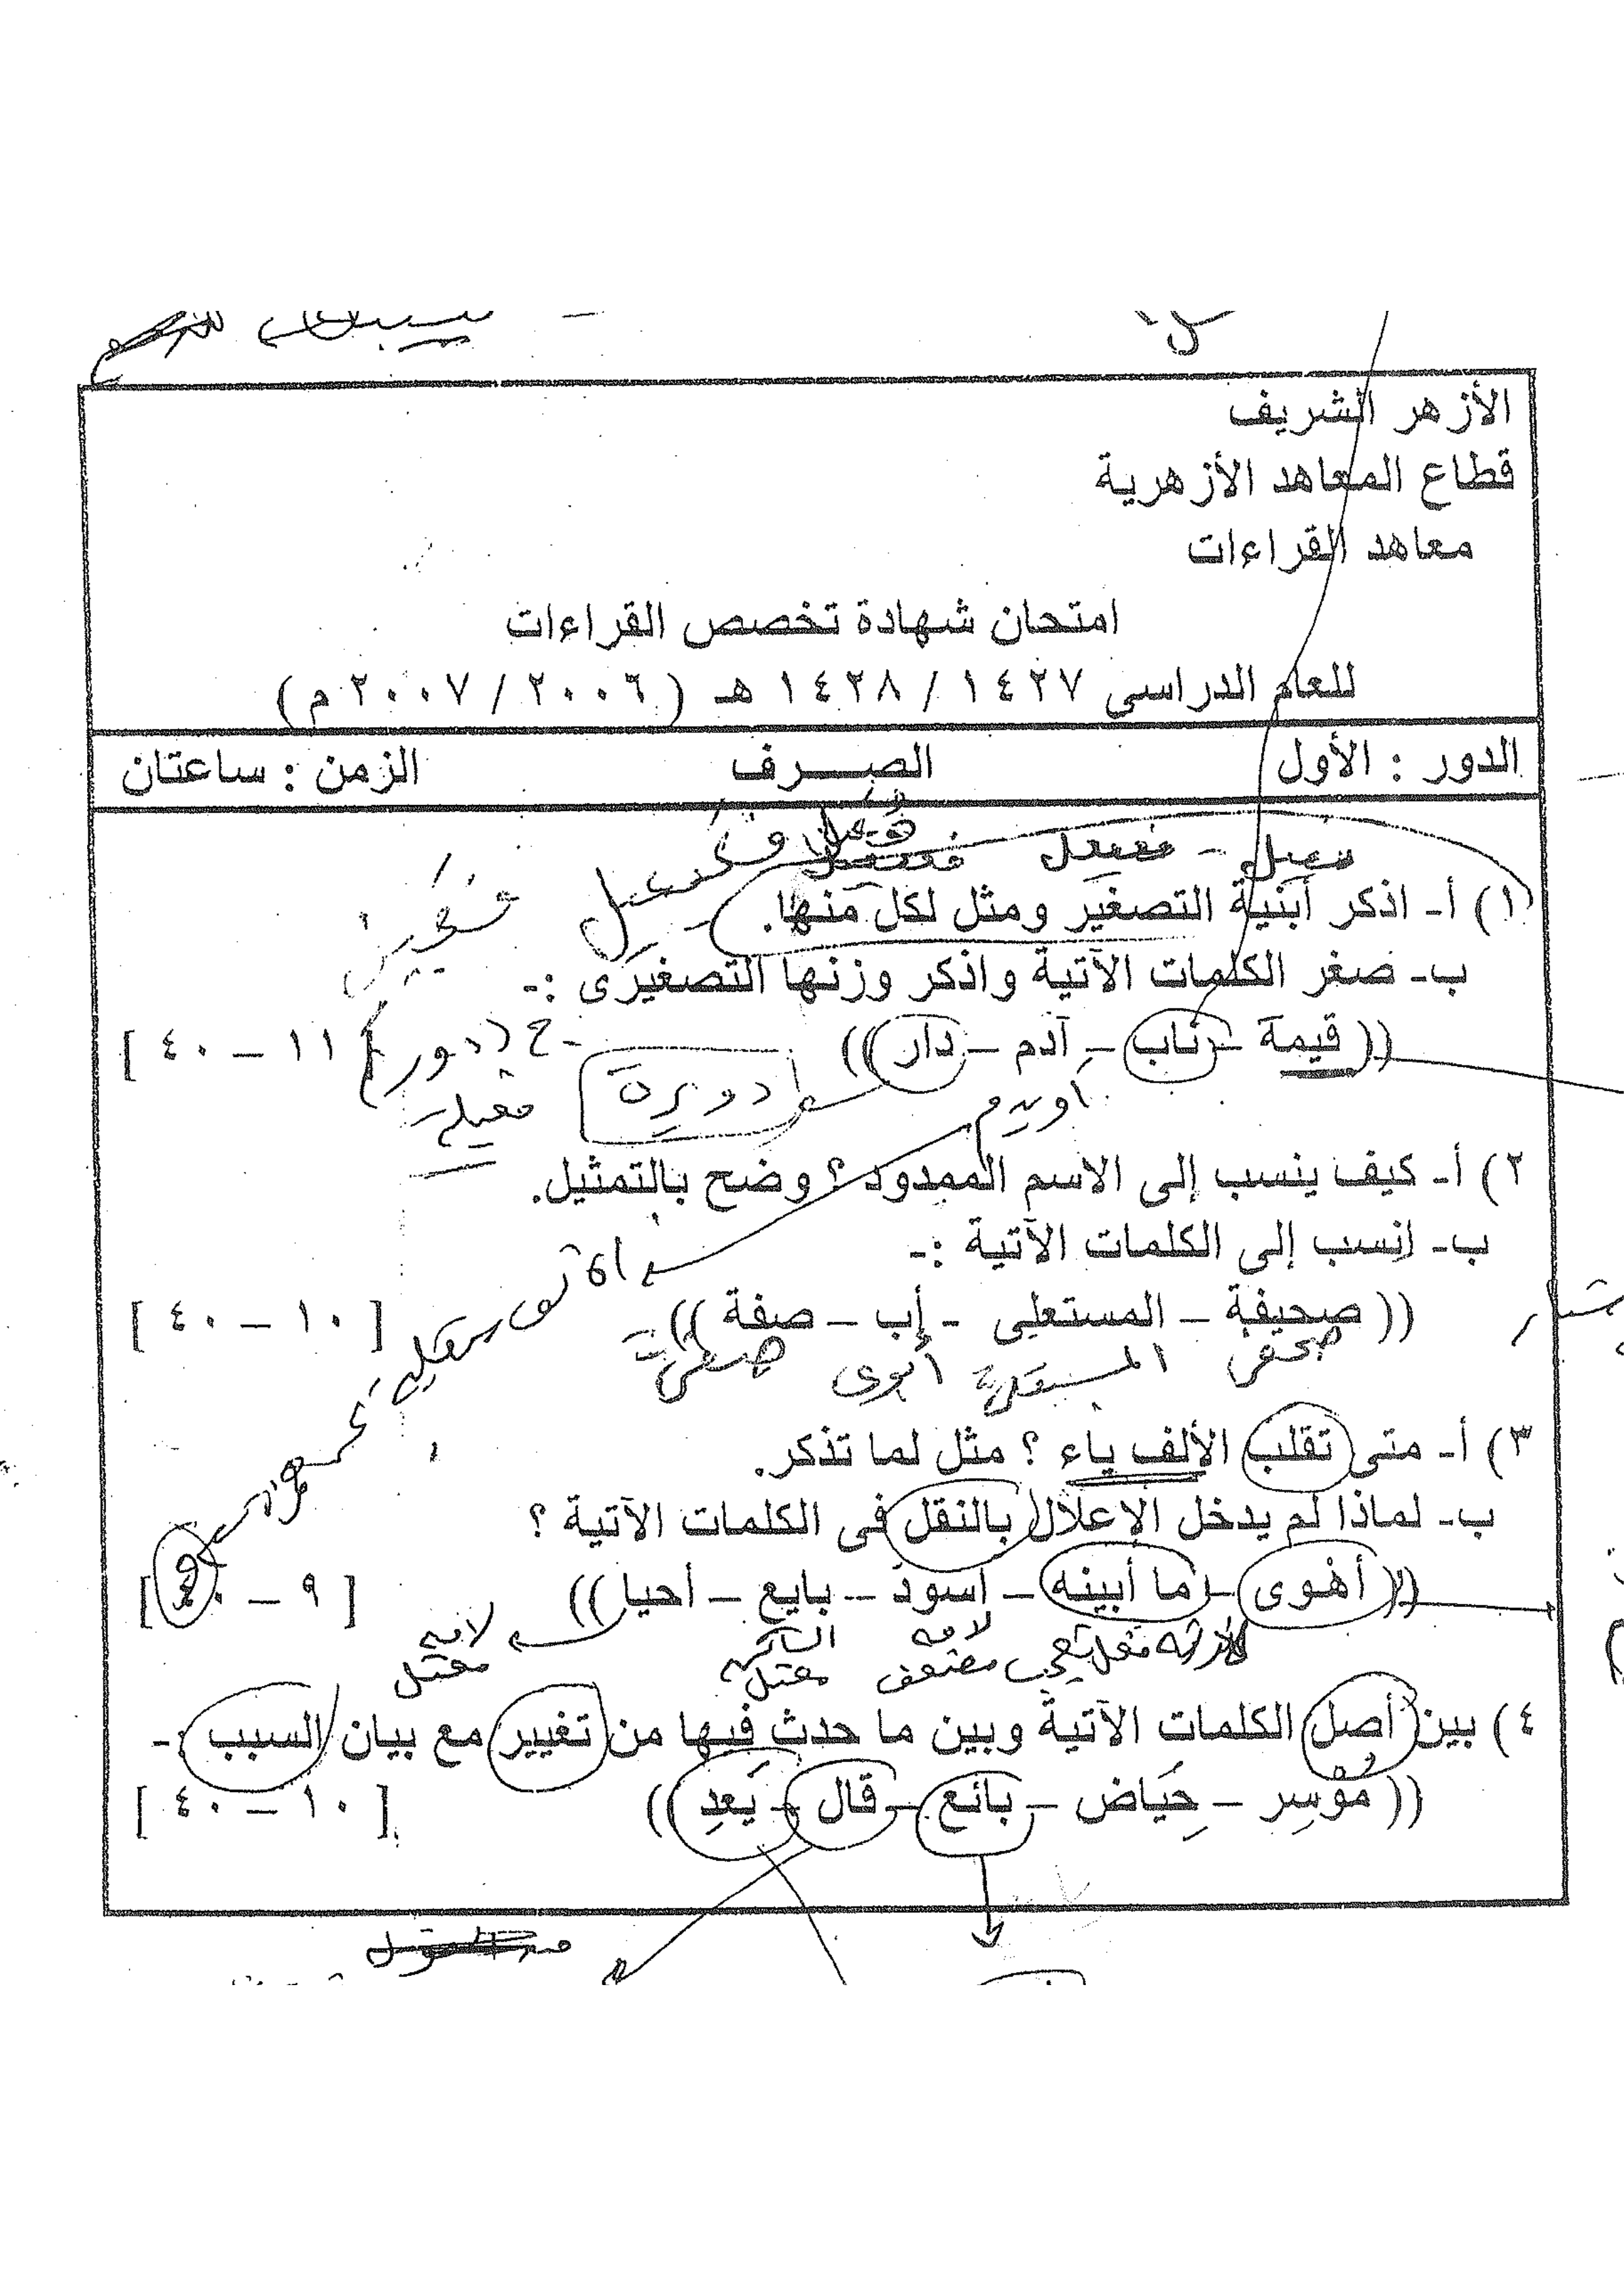 الأزهر الشريف
قطاع المعاهد الأزهرية
معاهد القراءات
امتحان شهادة تخصص القراءات
للعام الدراسى ١٤٢٧ / ١٤٢٨ هـ ( ٢٠٠٦ / ٢٠٠٧ م )
الدور : الأول الصـــرف الزمن : ساعتان
فعيل - فعيعل فعيعيل
١) أ- اذكر أبنية التصغير ومثل لكل منها.
ب- صغر الكلمات الآتية واذكر وزنها التصغيرى :-
(( قيمة - ناب - آدم - دار )) [ ١١ - ٤٠ ]
أويدم دويرة
٢) أ- كيف ينسب إلى الاسم الممدود ؟ وضح بالتمثيل.
ب- انسب إلى الكلمات الآتية :-
(( صحيفة - المستعلى - أب - صفة )) [ ١٠ - ٤٠ ]
صحفى أبوى
٣) أ- متى تقلب الألف ياء ؟ مثل لما تذكر.
ب- لماذا لم يدخل الإعلال بالنقل فى الكلمات الآتية ؟
(( أهوى - ما أبينه - اسودّ - بايع - أحيا )) [ ٩ - ٤٠ ]
لامه مضعف الساكن معتل لامه معتل
٤) بين أصل الكلمات الآتية وبين ما حدث فيها من تغيير مع بيان السبب :-
(( مُوْسِر - حِيَاض - بائع - قال - يَعِدِ )) [ ١٠ - ٤٠ ]